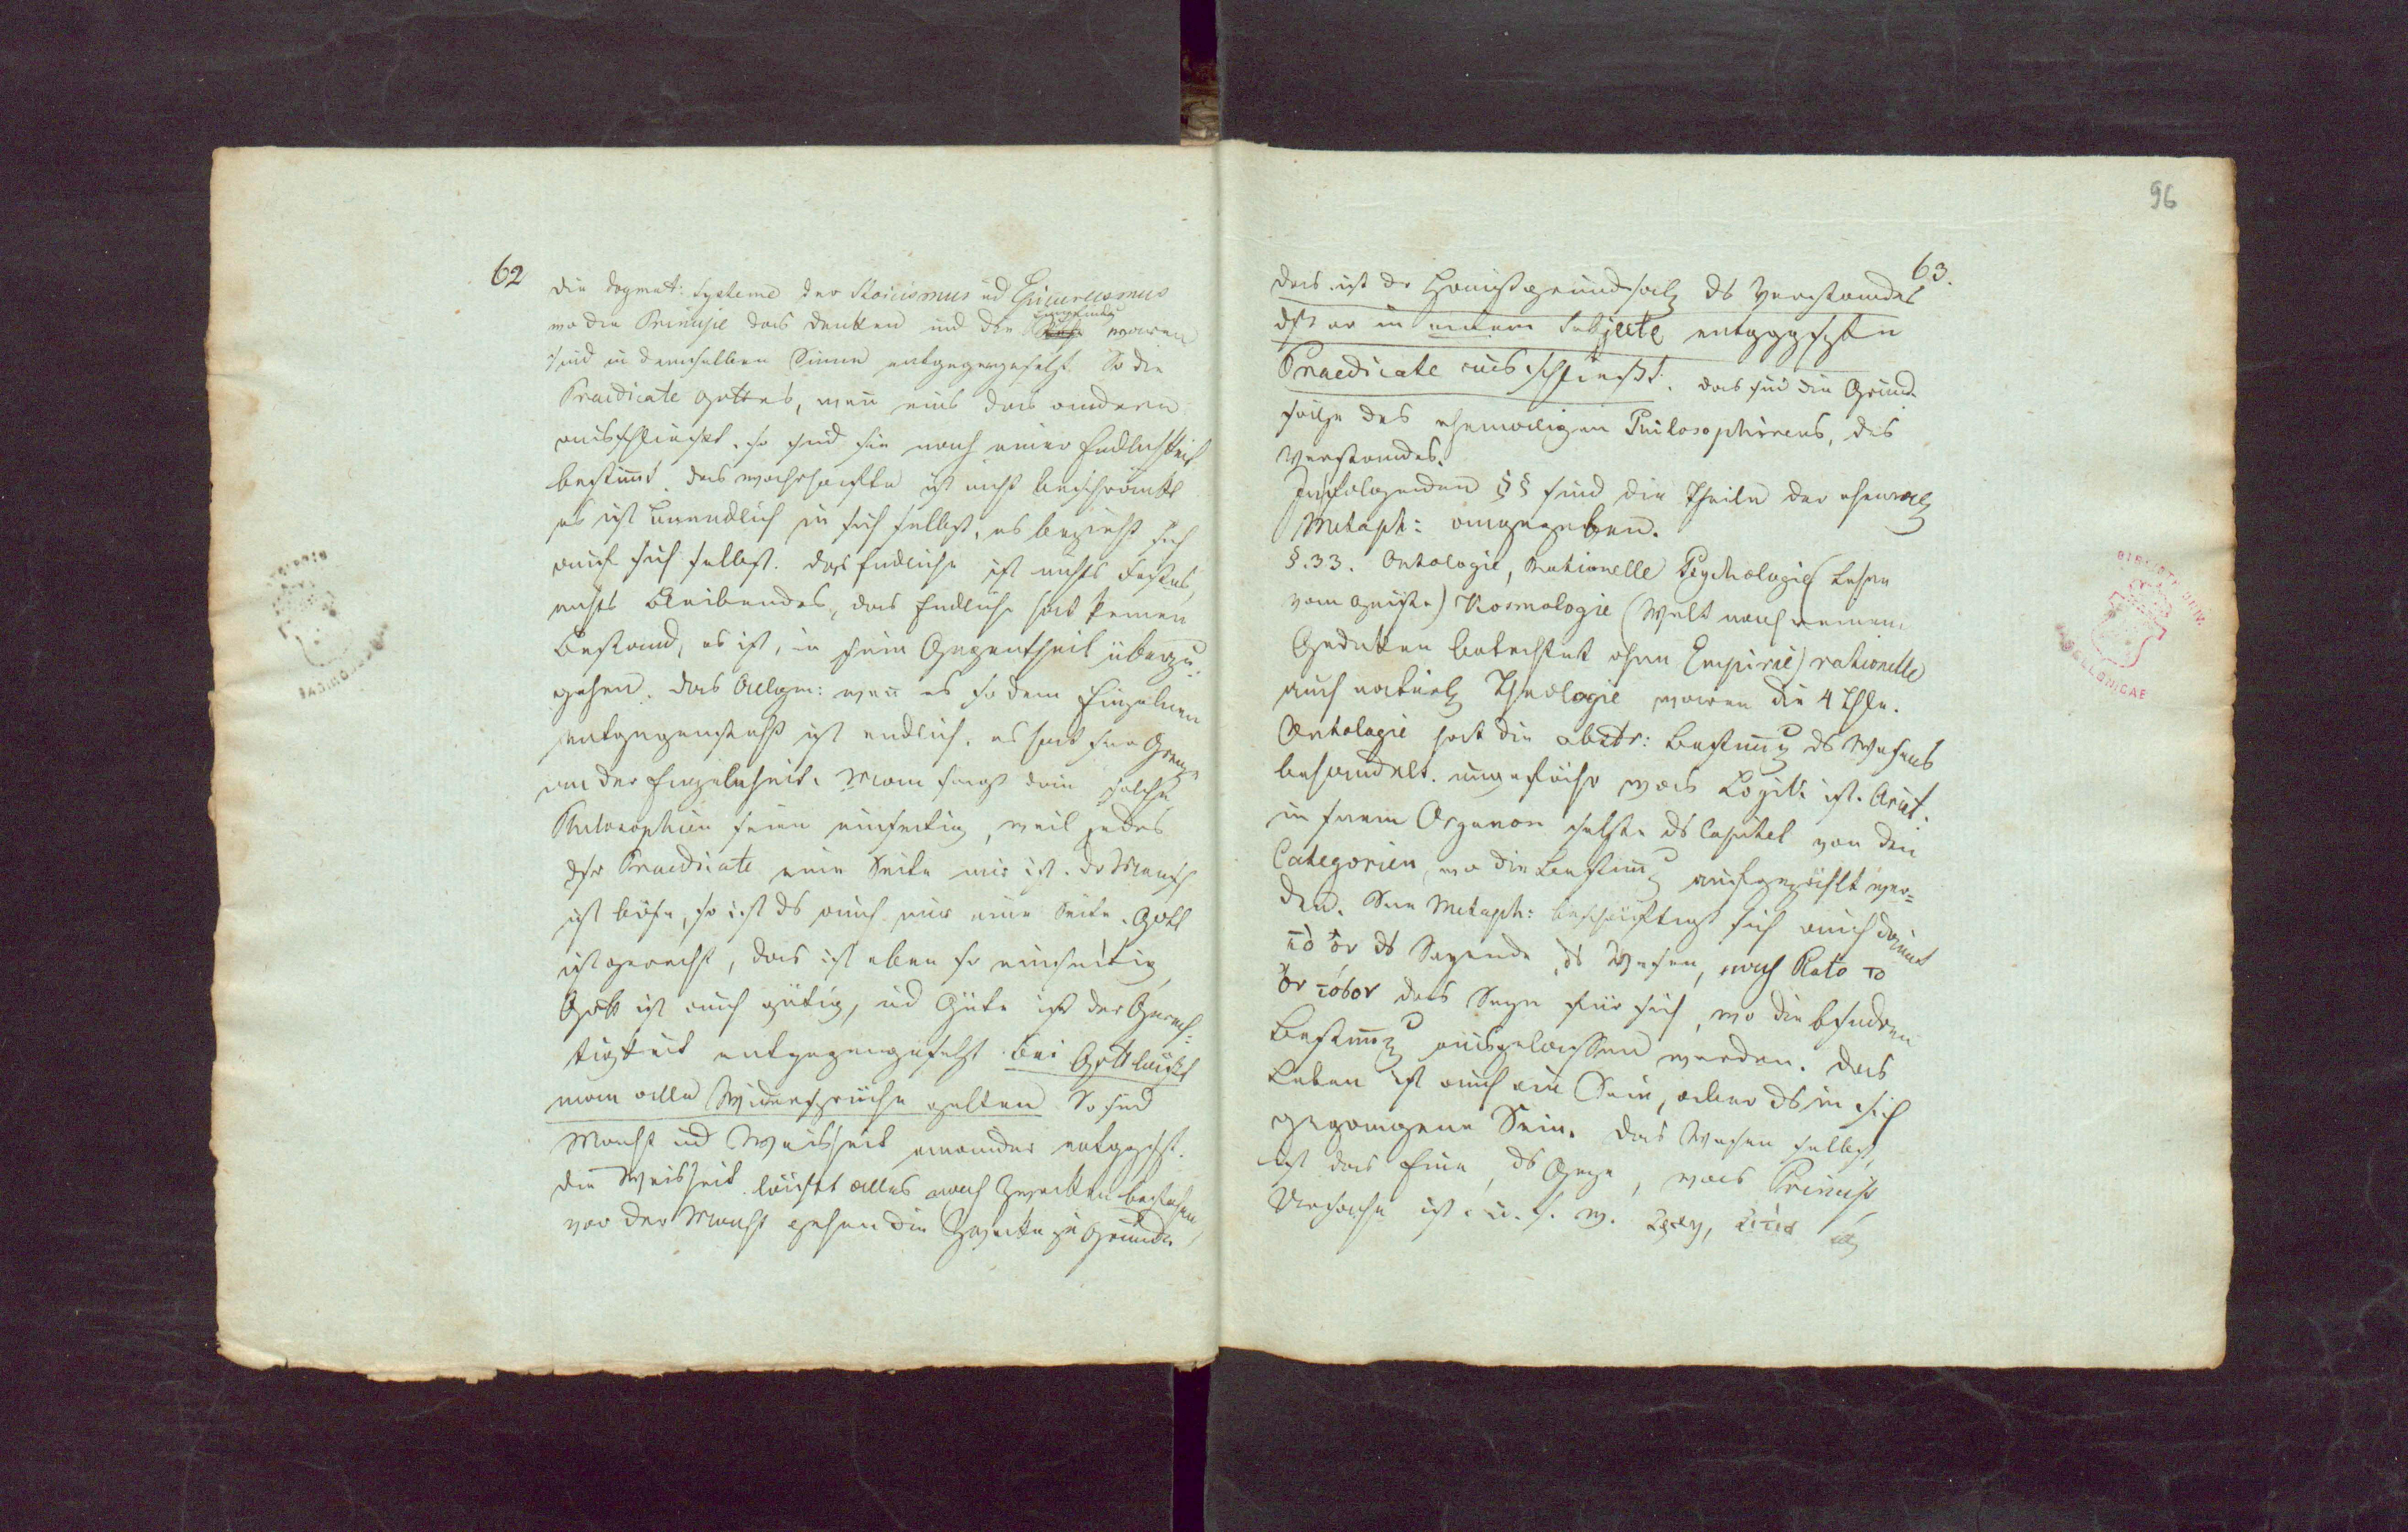 62
die dogmat: Systeme der Stoicismus ud Epicureismus
wo die Principe das Denken und die Empfindg waren
sind in demselben Sinne entgegengesetzt. So die
Praedicate Gottes, weñ eins das andere
ausschliesst, so sind sie nach einer Endlichkeit
bestim̄t. das wahrhafte ist nicht beschränkt
es ist Unendlich in sich selbst, es bezieht sich
auf sich selbst. das Endliche ist nichts Festes,
nichts Bleibendes, das Endliche hat keinen
Bestand, es ist, in sein Gegentheil überzu-
gehen. das Allgm: weñ es so dem Einzelnen
entgegensteht ist endlich, es hat sne Grenze
an der Einzelnheit. Man sagt dan̄ solche
Philosophien seien einseitig, weil jedes
dsr Praedicate eine Seite nur ist. Dr Mensch
ist böse, so ist ds auch nur eine Seite. Gott
ist gerecht, das ist eben so einseitig,
Gott ist auch gütig, ud Güte ist der Gerech-
tigkeit entgegengesetzt. Bei Gott läßt
man alle Widersprüche gelten. So sind
Macht ud Weisheit einander entggst.
die Weisheit läßt alles nach Zwecken bestehen,
vor der Macht gehen die Zwecke zu Grunde.
96
63.
das ist dr Hauptgrundsatz ds Verstandes
dß er in einem Subjecte entgggsztn
Praedicate ausschliesst. das sind die Grund-
sätze des ehemaligen Philosophirens, des
Verstandes.
In folgenden §§ sind die Theile der ehemalg
Metaph: angegeben.
§.33. Ontologie, Rationelle Psychologie (Lehre
vom Geiste) Kosmologie (Welt nach reinem
Gedanken betrachtet ohne Empirie) rationelle
auch natürlg Theologie waren die 4 Thle.
Ontologie hat die abstr: Bestim̄g ds Wesens
behandelt. ungefähr was Logik ist. Arist.
in seinem Organon stehte ds Capitel von den
Categorien, wo die Bestim̄g aufgezählt wer-
den. Sne Metaph: beschäftigt sich auch damit
τὸ ὂν ds Seyende, ds Wesen, nach Plato τὸ
ὂν das Seyn für sich, wo die bsndren
Bestim̄g ausgelassen werden. Das
Leben ist auch ein Sein, aber ds in sich
gegangene Sein. das Wesen selbst,
ist das Eine, ds Gnze, was Princip
Ursache ist. u. s. w.